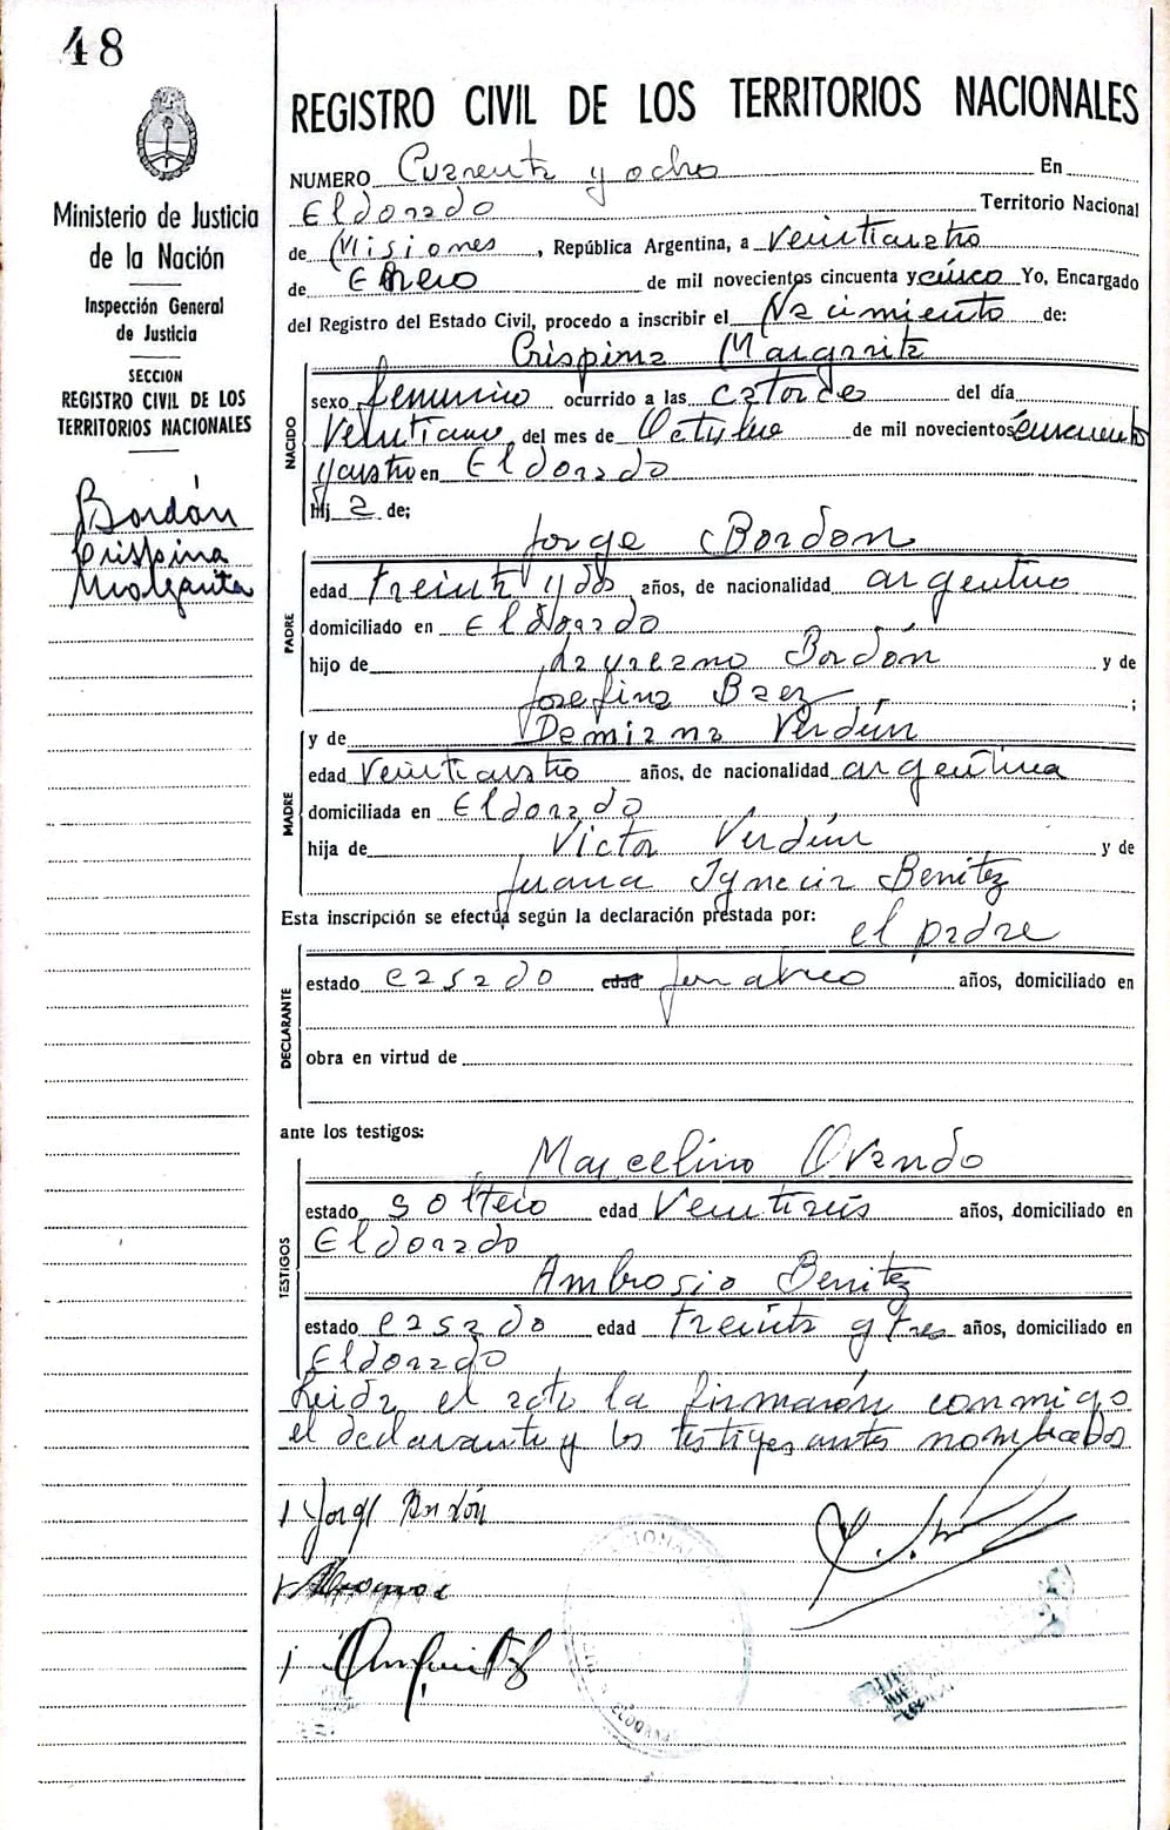 48
Ministerio de Justicia
de la Nación
Inspección General
de Justicia
SECCION
REGISTRO CIVIL DE LOS
TERRITORIOS NACIONALES
Bordán
Crispina
Margarita
REGISTRO CIVIL DE LOS TERRITORIOS NACIONALES
NUMERO Cuarenta y ocho En
Eldorado Territorio Nacional
de Misiones, República Argentina, a veinticuatro
de Enero de mil novecientos cincuenta y cinco Yo, Encargado
del Registro del Estado Civil, procedo a inscribir el Nacimiento de:
Crispina Margarita
NACIDO
sexo femenino ocurrido a las catorce del día
veinticinco del mes de Octubre de mil novecientos cincuenta
y cuatro en Eldorado
Hij a de:
Jorge Bordon
PADRE
edad treinta y dos años, de nacionalidad argentino
domiciliado en Eldorado
hijo de Bordón y de
Josefina Baez ;
y de Demiana Verdún
MADRE
edad veinticuatro años, de nacionalidad argentina
domiciliada en Eldorado
hija de Victor Verdún y de
Juana Ignacia Benitez
Esta inscripción se efectúa según la declaración prestada por: el padre
DECLARANTE
estado casado edad años, domiciliado en
obra en virtud de
ante los testigos:
Marcelino Ovando
TESTIGOS
estado soltero edad años, domiciliado en
Eldorado
Ambrosio Benitez
estado casado edad treinta y tres años, domiciliado en
Eldorado
Leida el acta la firmarón conmigo
el declarante y los testigos antes nombrados
Jorge Bordón